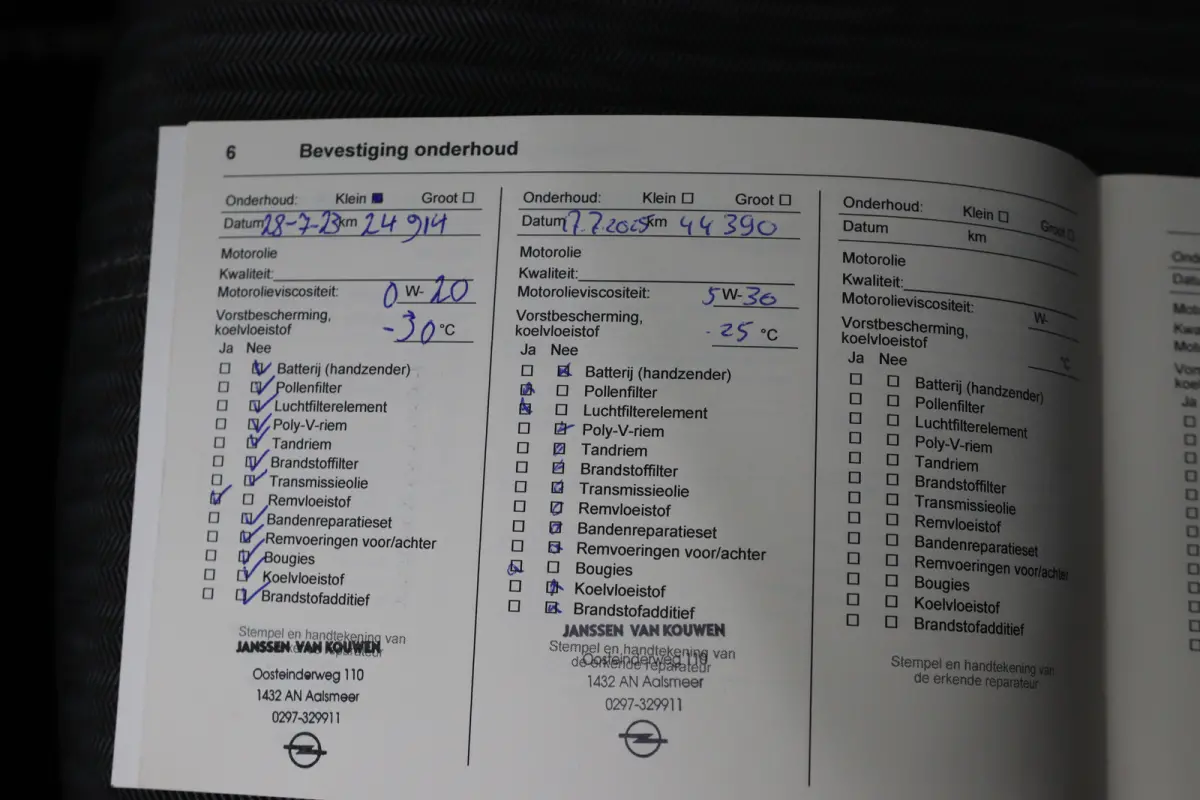 6 Bevestiging onderhoud
Onderhoud: Klein ■ Groot □
Datum 28-7-23 km 24 914
Motorolie
Kwaliteit:
Motorolieviscositeit: 0 W- 20
Vorstbescherming,
koelvloeistof -30 °C
Ja Nee
□ ☑ Batterij (handzender)
□ ☑ Pollenfilter
□ ☑ Luchtfilterelement
□ ☑ Poly-V-riem
□ ☑ Tandriem
□ ☑ Brandstoffilter
□ ☑ Transmissieolie
☑ □ Remvloeistof
□ ☑ Bandenreparatieset
□ ☑ Remvoeringen voor/achter
□ ☑ Bougies
□ ☑ Koelvloeistof
□ ☑ Brandstofadditief
Stempel en handtekening van
JANSSEN VAN KOUWEN
Oosteinderweg 110
1432 AN Aalsmeer
0297-329911
Onderhoud: Klein □ Groot □
Datum 7.7.2025 km 44 390
Motorolie
Kwaliteit:
Motorolieviscositeit: 5 W- 30
Vorstbescherming,
koelvloeistof -25 °C
Ja Nee
□ ☑ Batterij (handzender)
☑ □ Pollenfilter
☑ □ Luchtfilterelement
□ ☑ Poly-V-riem
□ ☑ Tandriem
□ ☑ Brandstoffilter
□ ☑ Transmissieolie
□ ☑ Remvloeistof
□ ☑ Bandenreparatieset
□ ☑ Remvoeringen voor/achter
☑ □ Bougies
□ ☑ Koelvloeistof
□ ☑ Brandstofadditief
JANSSEN VAN KOUWEN
Stempel en handtekening van
Oosteinderweg 110
de erkende reparateur
1432 AN Aalsmeer
0297-329911
Onderhoud: Klein □ Groot □
Datum km
Motorolie
Kwaliteit:
Motorolieviscositeit: W-
Vorstbescherming,
koelvloeistof °C
Ja Nee
□ □ Batterij (handzender)
□ □ Pollenfilter
□ □ Luchtfilterelement
□ □ Poly-V-riem
□ □ Tandriem
□ □ Brandstoffilter
□ □ Transmissieolie
□ □ Remvloeistof
□ □ Bandenreparatieset
□ □ Remvoeringen voor/achter
□ □ Bougies
□ □ Koelvloeistof
□ □ Brandstofadditief
Stempel en handtekening van
de erkende reparateur
Ja